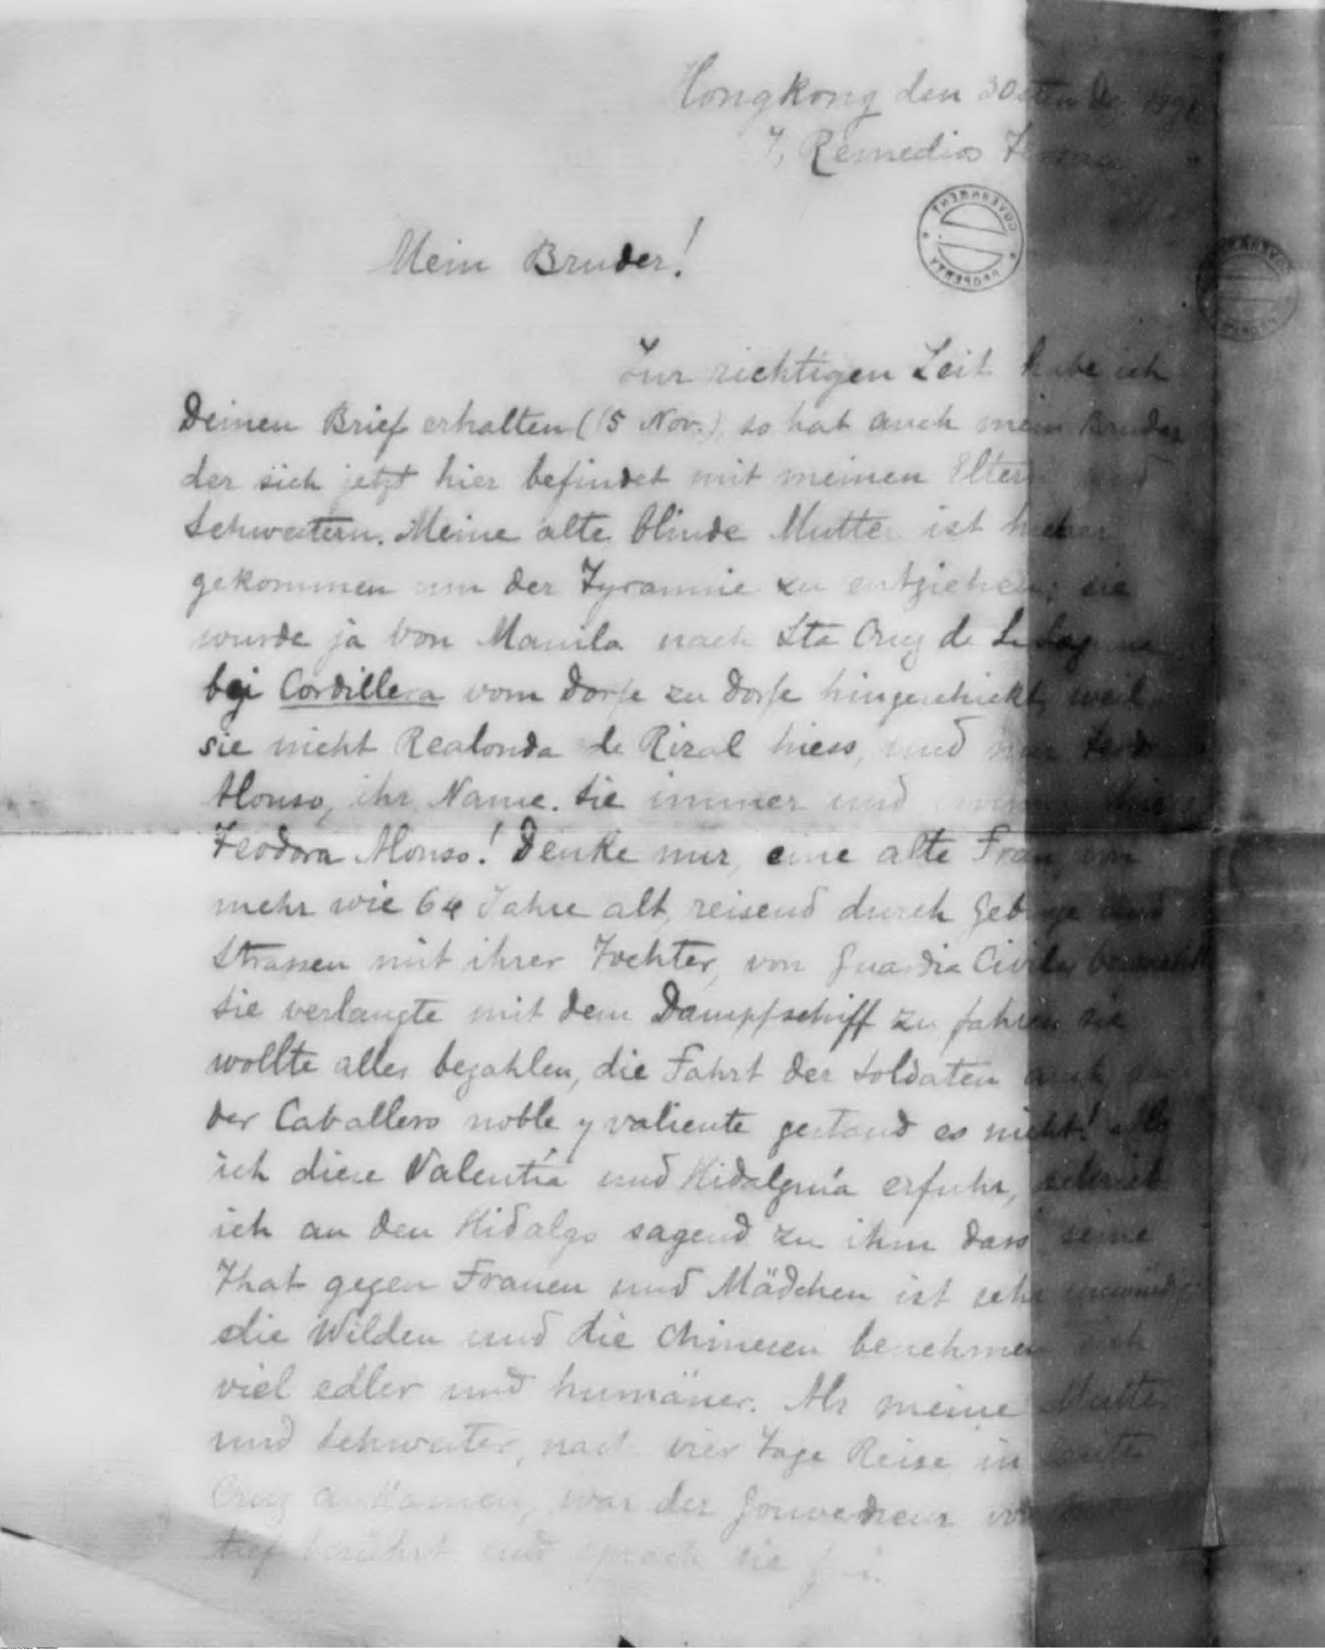 Hongkong den 30
7, Remedios
GOVERNMENT PROPERTY
Mein Bruder!
Zur richtigen Zeit habe ich
Deinen Brief erhalten (15 Nov.) so hat auch mein Bruder
der sich jetzt hier befindet mit meinen Eltern und
Schwestern. Meine alte blinde Mutter ist hieher
gekommen um der Tyrannie zu entziehen; sie
wurde ja von Manila nach Sta Cruz de La Laguna
bei Cordillera vom Dorfe zu Dorfe hingeschickt, weil
sie nicht Realonda de Rizal hiess, und nur
Alonso, ihr Name. Sie immer und
Teodora Alonso! Denke nur, eine alte Frau von
mehr wie 64 Jahre alt, reisend durch Gebirge und
Strassen mit ihrer Tochter, von Guardia Civiles
Sie verlangte mit dem Dampfschiff zu fahren sie
wollte alles bezahlen, die Fahrt der Soldaten auch,
der Caballero noble y valiente gestand es nicht! Als
ich diese Valentía und Hidalguía erfuhr, schrieb
ich an den Hidalgo sagend zu ihm dass seine
That gegen Frauen und Mädchen ist sehr
die Wilden und die Chinesen benehmen sich
viel edler und humäner. Als meine Mutter
und Schwester, nach vier Tage Reise in
Cruz ankamen, war der
tief berührt und sprach sie